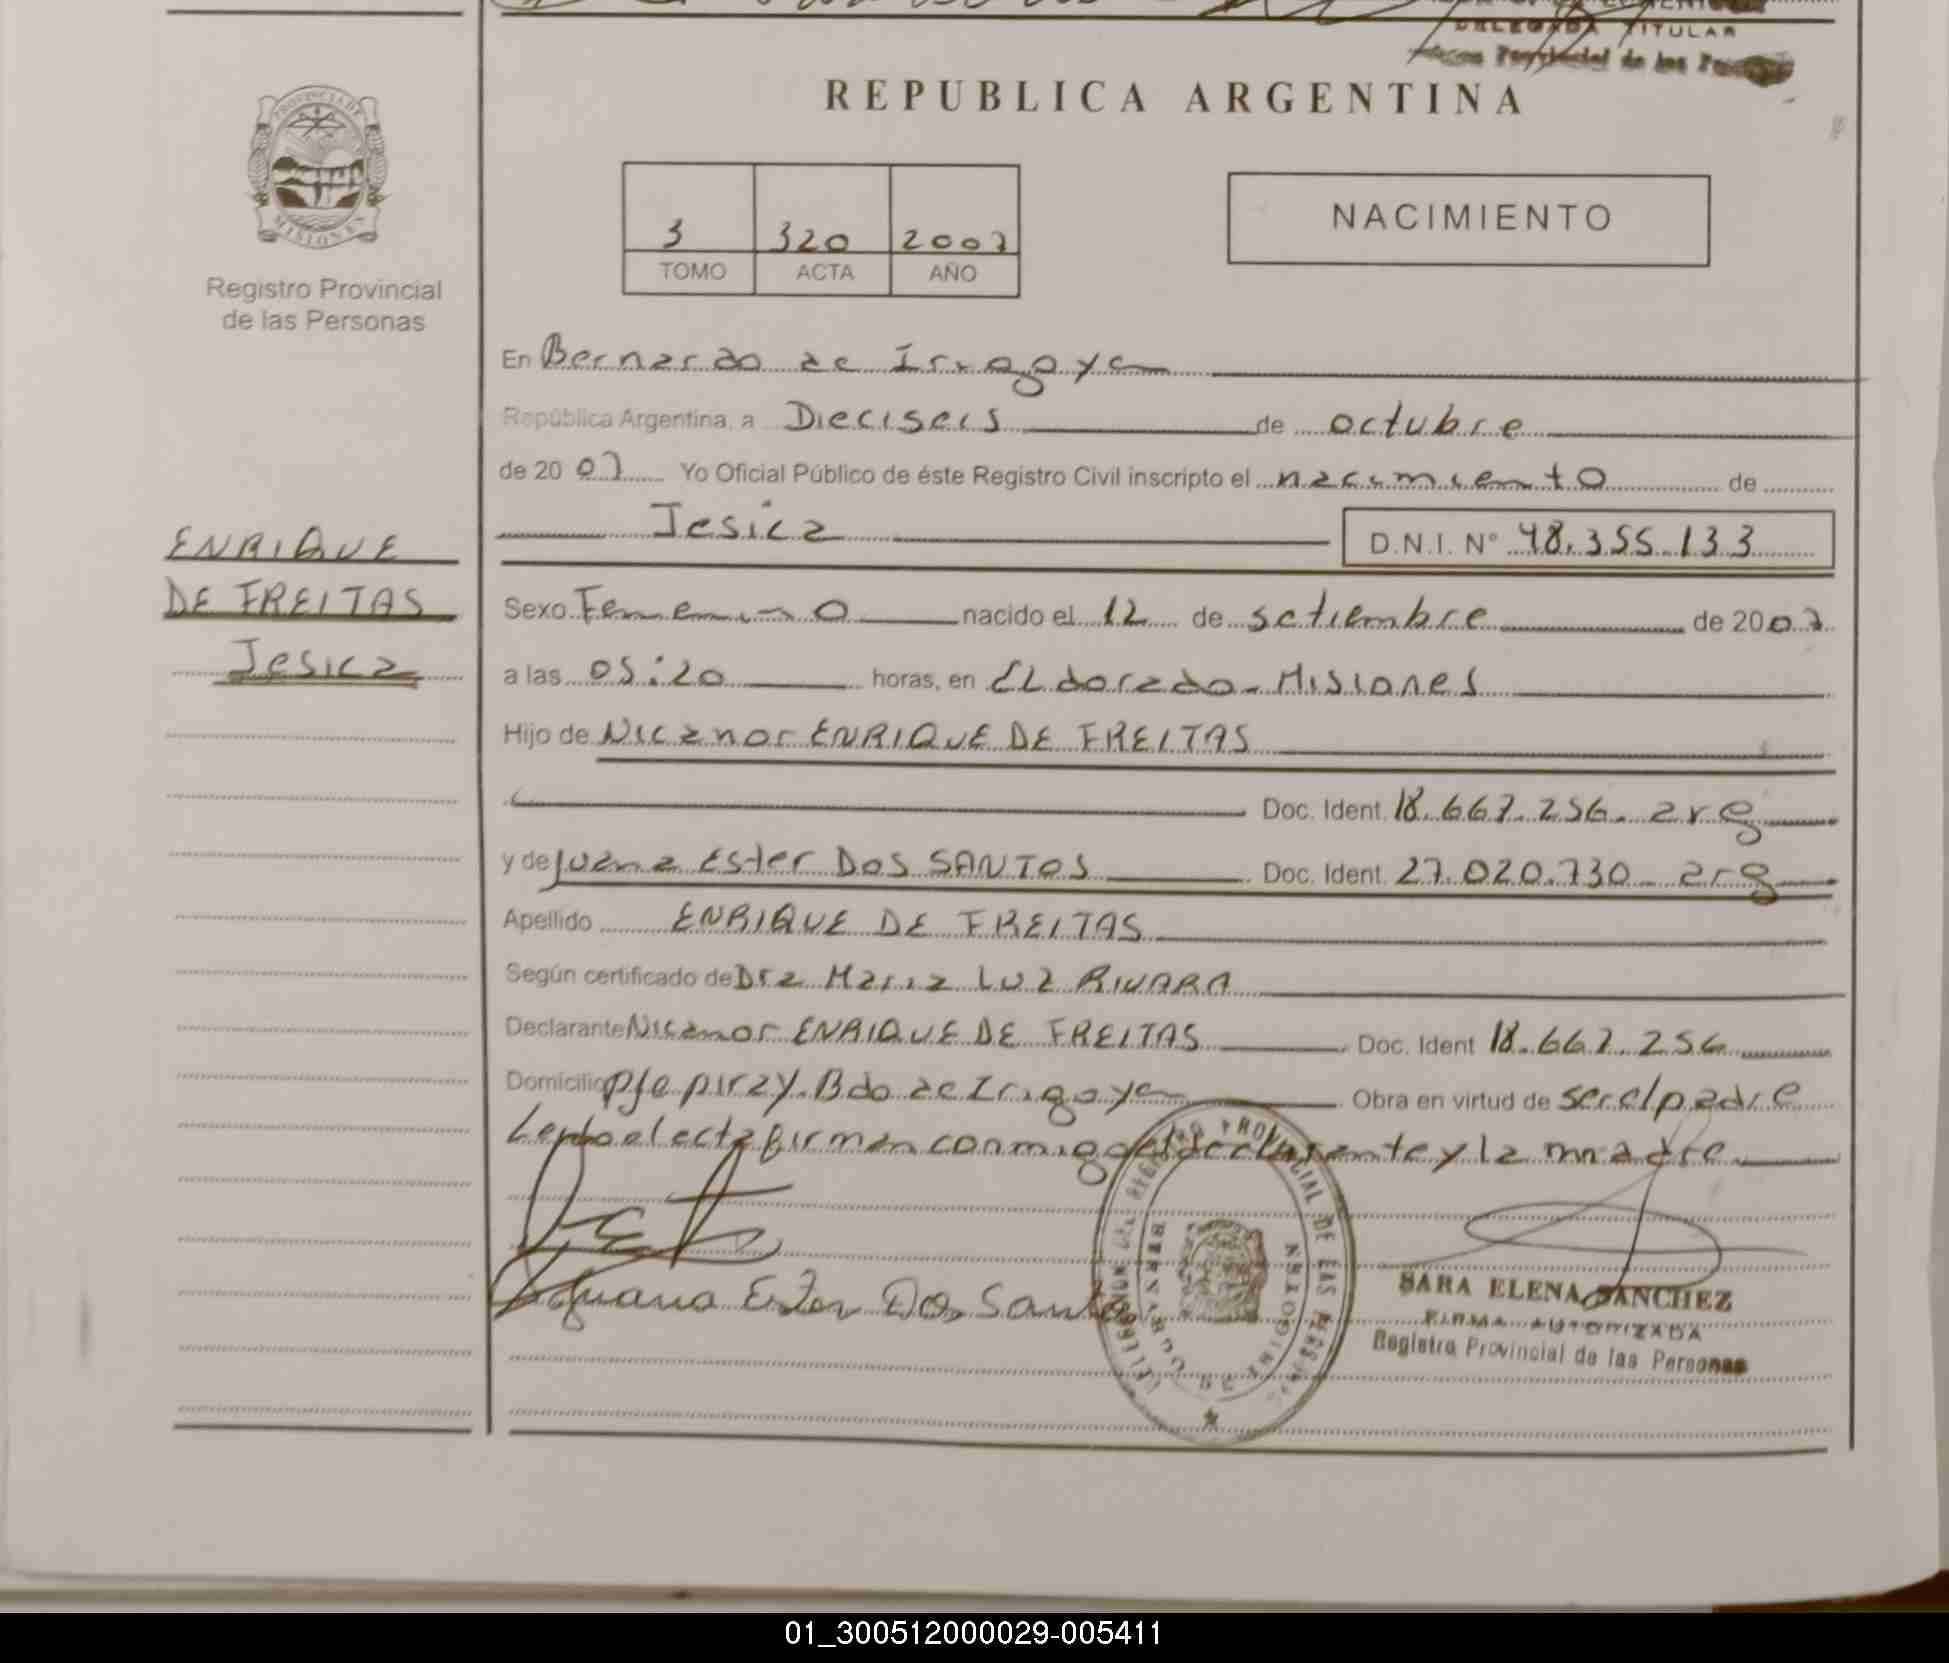 DELEGADA TITULAR
REPUBLICA ARGENTINA
PROVINCIA DE
MISIONES
Registro Provincial
de las Personas
3 320 2007
TOMO ACTA AÑO
NACIMIENTO
En Bernardo de Irigoyen
República Argentina, a Dieciseis de octubre
de 2007 Yo Oficial Público de éste Registro Civil inscripto el nacimiento de
Jesica D.N.I. N° 48.355.133
ENRIQUE
DE FREITAS
Jesica
Sexo Femenino nacido el 12 de setiembre de 2007
a las 05:20 horas, en ELdorado - Misiones
Hijo de Nicanor ENRIQUE DE FREITAS
Doc. Ident. 18.667.256. arg
y de Juana Ester DOS SANTOS Doc. Ident. 27.020.730 arg
Apellido ENRIQUE DE FREITAS
Según certificado de Dra Maria Luz RIVARA
Declarante Nicanor ENRIQUE DE FREITAS Doc. Ident 18.667.256
Domicilio Pje piray. Bdo de Irigoyen Obra en virtud de ser el padre
Leydo el acta firman conmigo el declarante y la madre
Juana Ester Dos Santos
SARA ELENA SANCHEZ
FIRMA AUTORIZADA
Registro Provincial de las Personas
01_300512000029-005411